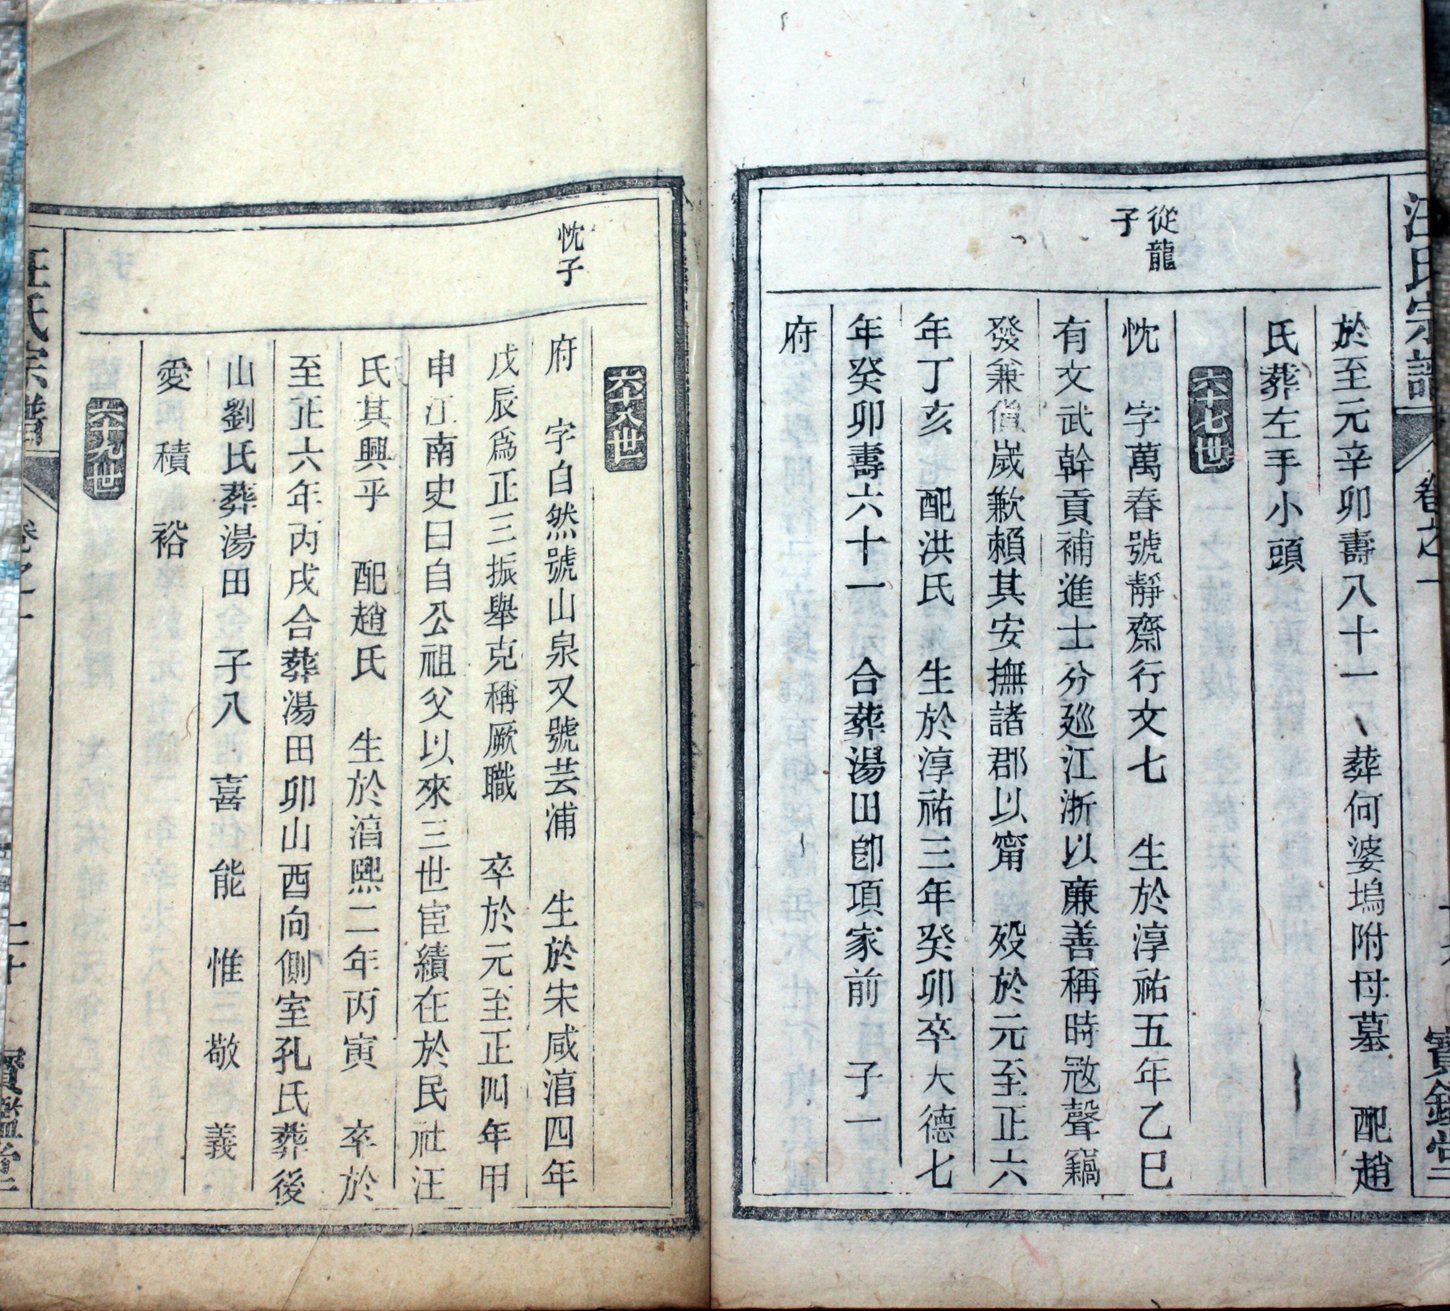 汪氏宗譜
卷之一
寶鑑堂
於至元辛卯壽八十一 葬何婆塢附母墓 配趙
氏葬左手小頭
六十七世
從龍
子
忱 字萬春號靜齋行文七 生於淳祐五年乙巳
有文武幹貢補進士分廵江浙以廉善稱時宼聲竊
發兼值歲歉賴其安撫諸郡以甯 歿於元至正六
年丁亥 配洪氏 生於淳祐三年癸卯卒大德七
年癸卯壽六十一 合葬湯田卽項家前 子一
府
忱子
六十八世
府 字自然號山泉又號芸浦 生於宋咸湻四年
戊辰爲正三振舉克稱厥職 卒於元至正四年甲
申江南史曰自公祖父以來三世宦績在於民社汪
氏其興乎 配趙氏 生於湻熙二年丙寅 卒於
至正六年丙戌合葬湯田卯山酉向側室孔氏葬後
山劉氏葬湯田 子八 喜 能 惟 敬 義
愛 積 裕
六十九世
汪氏宗譜
卷之一
二十
寶鑑堂